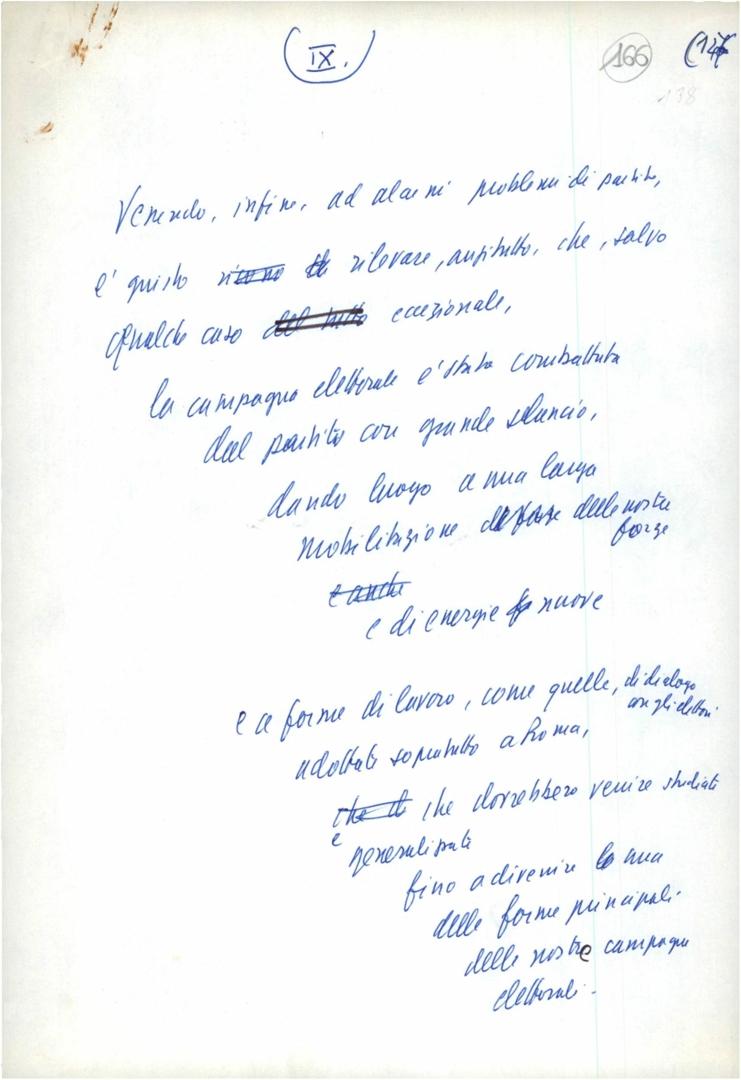 IX.
166
138
Venendo, infine, ad alcuni problemi di partito,
è giusto rilevare, anzitutto, che, salvo
qualche caso del tutto eccezionale,
la campagna elettorale è stata combattuta
dal partito con grande slancio,
dando luogo a una larga
mobilitazione delle nostre
forze
e anche
e di energie nuove
e a forme di lavoro, come quelle, di dialogo
con gli elettori
adottate sopratutto a Roma,
che di che dovrebbero venire studiate
e generalizzate
fino a divenire una
delle forme principali
delle nostre campagne
elettorali.